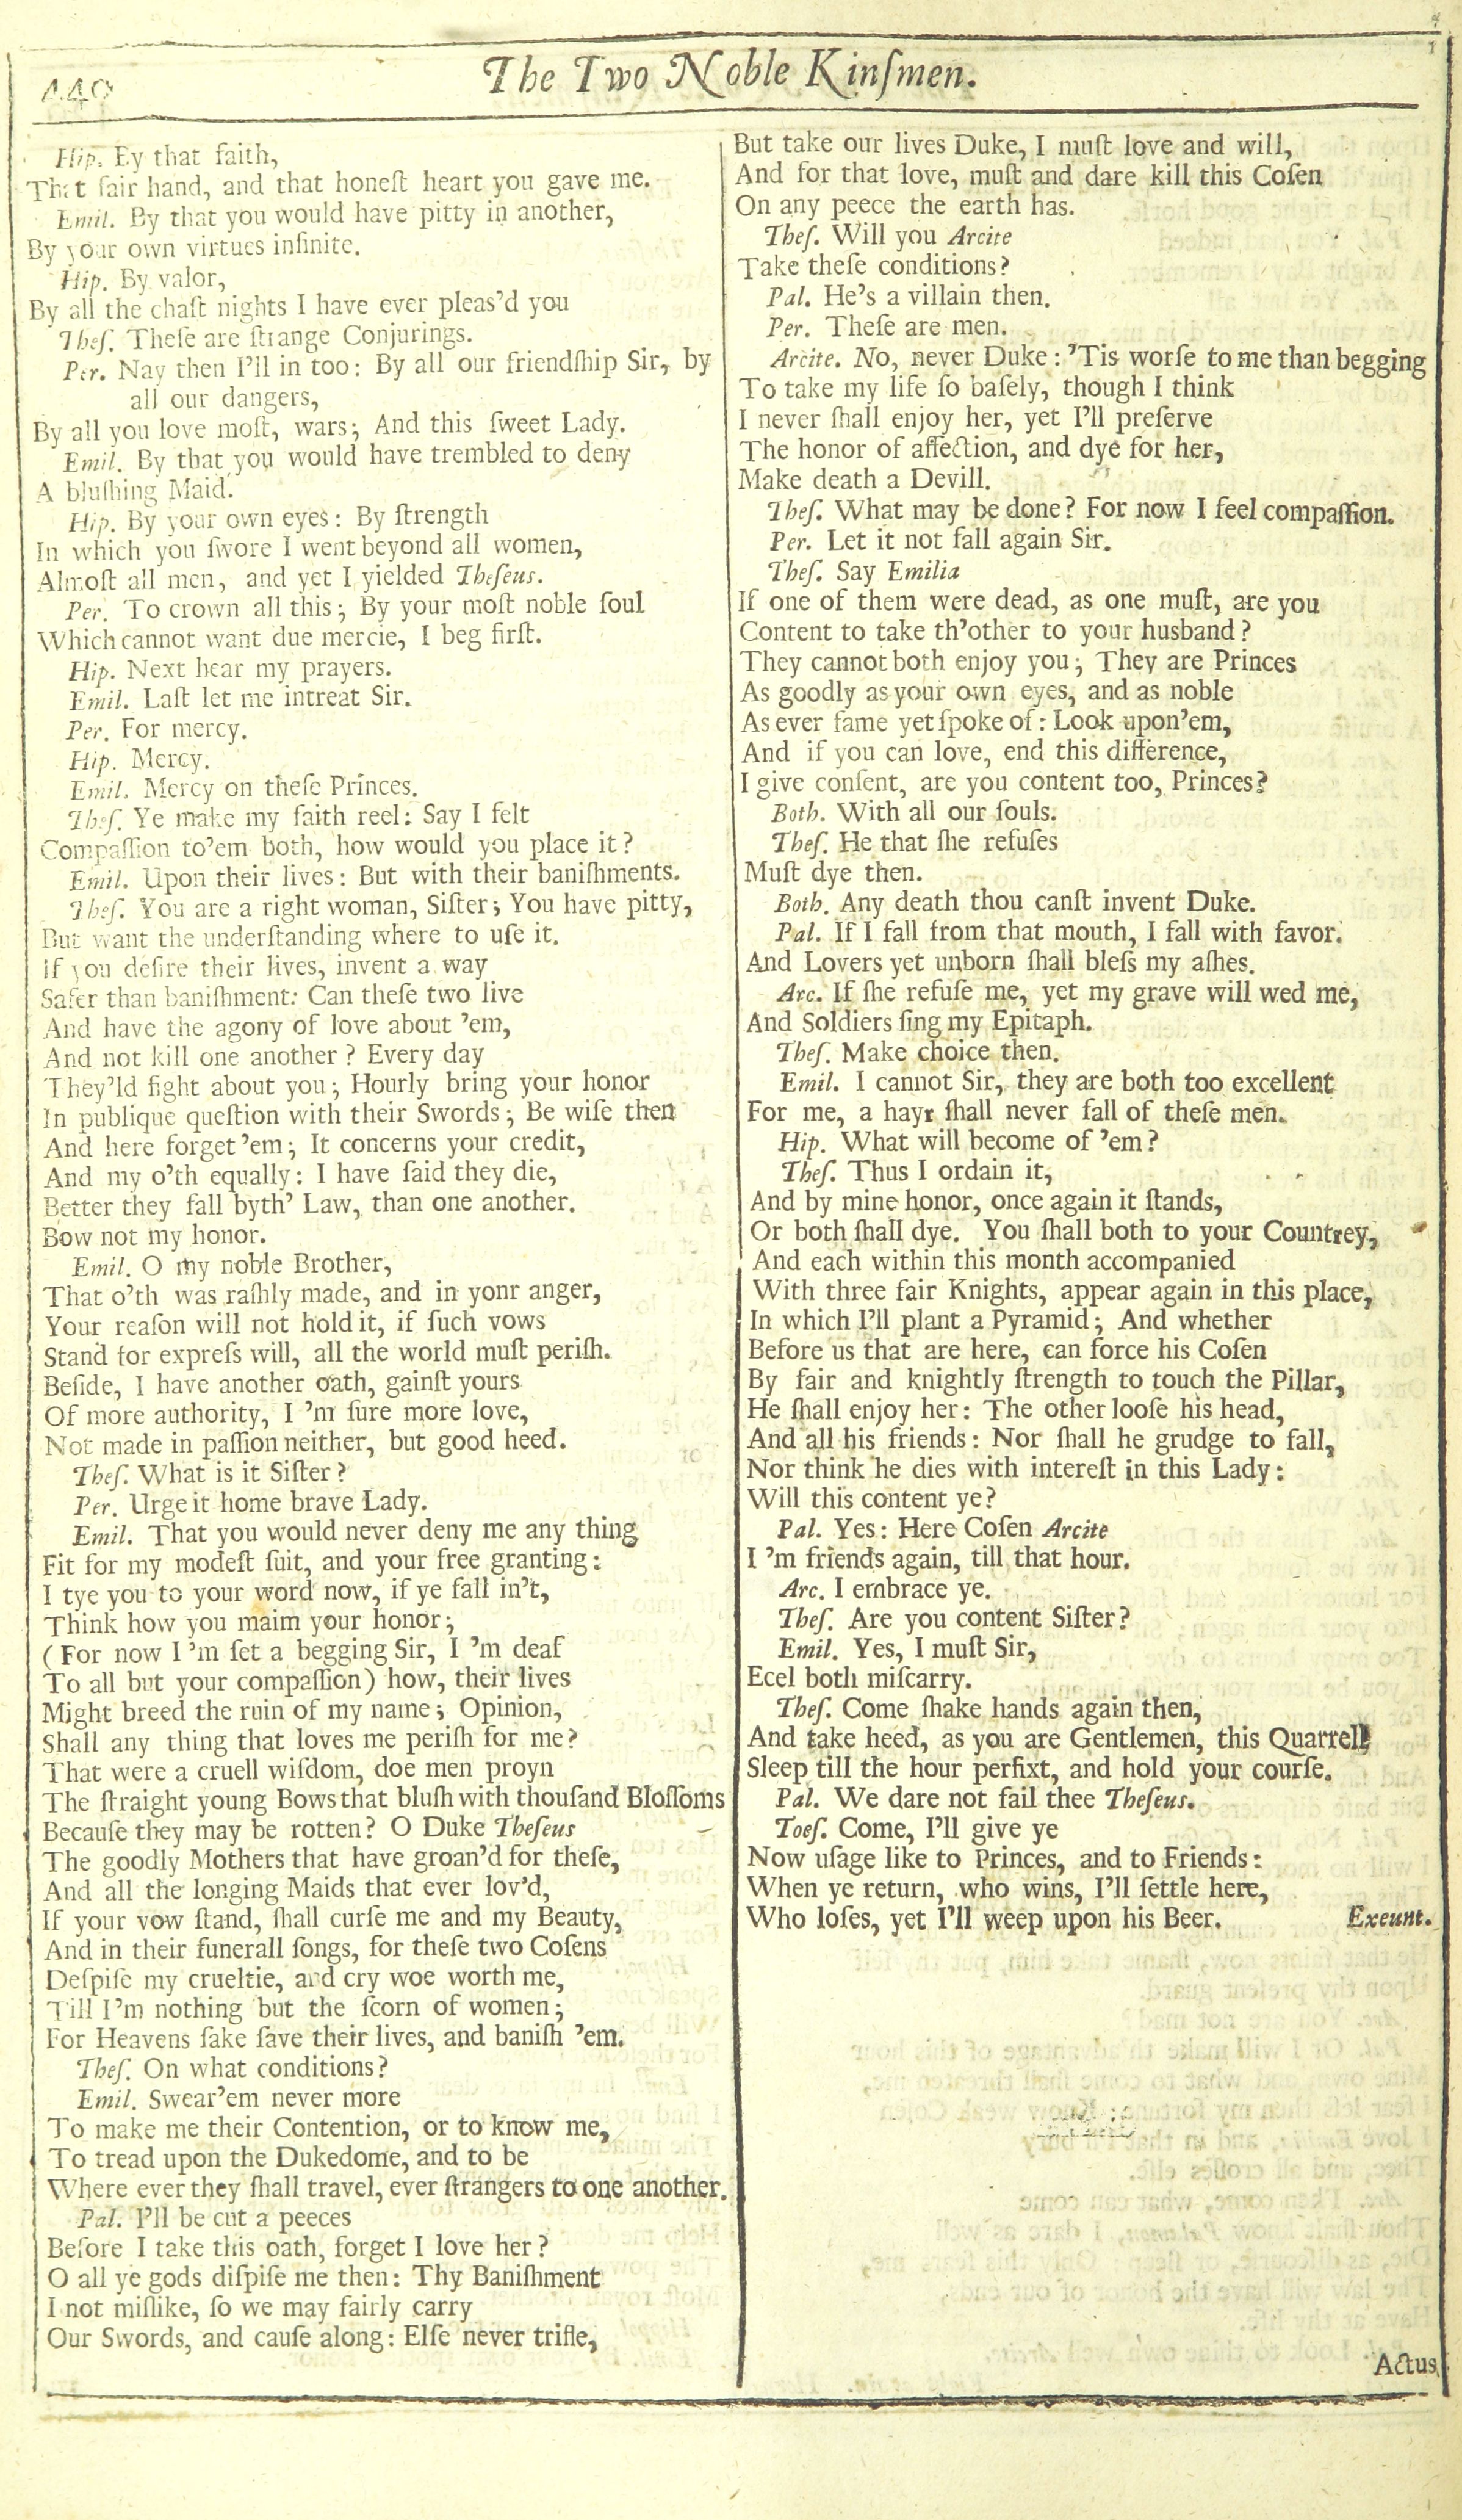 440
The Two Noble Kinſmen.
Hip. By that faith,
That fair hand, and that honeſt heart you gave me.
Emil. By that you would have pitty in another,
By your own virtues infinite.
Hip. By valor,
By all the chaſt nights I have ever pleas'd you
Theſ. Theſe are ſtrange Conjurings.
Per. Nay then I'll in too: By all our friendſhip Sir, by
all our dangers,
By all you love moſt, wars; And this ſweet Lady.
Emil. By that you would have trembled to deny
A bluſhing Maid.
Hip. By your own eyes: By ſtrength
In which you ſwore I went beyond all women,
Almoſt all men, and yet I yielded Theſeus.
Per. To crown all this; By your moſt noble ſoul
Which cannot want due mercie, I beg firſt.
Hip. Next hear my prayers.
Emil. Laſt let me intreat Sir.
Per. For mercy.
Hip. Mercy.
Emil. Mercy on theſe Princes.
Theſ. Ye make my faith reel: Say I felt
Compaſſion to'em both, how would you place it?
Emil. Upon their lives: But with their baniſhments.
Theſ. You are a right woman, Siſter; You have pitty,
But want the underſtanding where to uſe it.
If you deſire their lives, invent a way
Safer than baniſhment: Can theſe two live
And have the agony of love about 'em,
And not kill one another? Every day
They'ld fight about you; Hourly bring your honor
In publique queſtion with their Swords; Be wiſe then
And here forget 'em; It concerns your credit,
And my o'th equally: I have ſaid they die,
Better they fall byth' Law, than one another.
Bow not my honor.
Emil. O my noble Brother,
That o'th was raſhly made, and in yonr anger,
Your reaſon will not hold it, if ſuch vows
Stand for expreſs will, all the world muſt periſh.
Beſide, I have another oath, gainſt yours
Of more authority, I 'm ſure more love,
Not made in paſſion neither, but good heed.
Theſ. What is it Siſter?
Per. Urge it home brave Lady.
Emil. That you would never deny me any thing
Fit for my modeſt ſuit, and your free granting:
I tye you to your word now, if ye fall in't,
Think how you maim your honor;
(For now I 'm ſet a begging Sir, I 'm deaf
To all but your compaſſion) how, their lives
Might breed the ruin of my name; Opinion,
Shall any thing that loves me periſh for me?
That were a cruell wiſdom, doe men proyn
The ſtraight young Bows that bluſh with thouſand Bloſſoms
Becauſe they may be rotten? O Duke Theſeus
The goodly Mothers that have groan'd for theſe,
And all the longing Maids that ever lov'd,
If your vow ſtand, ſhall curſe me and my Beauty,
And in their funerall ſongs, for theſe two Coſens
Deſpiſe my crueltie, and cry woe worth me,
Till I'm nothing but the ſcorn of women;
For Heavens ſake ſave their lives, and baniſh 'em.
Theſ. On what conditions?
Emil. Swear'em never more
To make me their Contention, or to know me,
To tread upon the Dukedome, and to be
Where ever they ſhall travel, ever ſtrangers to one another.
Pal. I'll be cut a peeces
Before I take this oath, forget I love her?
O all ye gods diſpiſe me then: Thy Baniſhment
I not miſlike, ſo we may fairly carry
Our Swords, and cauſe along: Elſe never trifle,
But take our lives Duke, I muſt love and will,
And for that love, muſt and dare kill this Coſen
On any peece the earth has.
Theſ. Will you Arcite
Take theſe conditions?
Pal. He's a villain then.
Per. Theſe are men.
Arcite. No, never Duke: 'Tis worſe to me than begging
To take my life ſo baſely, though I think
I never ſhall enjoy her, yet I'll preſerve
The honor of affection, and dye for her,
Make death a Devill.
Theſ. What may be done? For now I feel compaſſion.
Per. Let it not fall again Sir.
Theſ. Say Emilia
If one of them were dead, as one muſt, are you
Content to take th'other to your husband?
They cannot both enjoy you; They are Princes
As goodly as your own eyes, and as noble
As ever fame yet ſpoke of: Look upon'em,
And if you can love, end this difference,
I give conſent, are you content too, Princes?
Both. With all our ſouls.
Theſ. He that ſhe refuſes
Muſt dye then.
Both. Any death thou canſt invent Duke.
Pal. If I fall from that mouth, I fall with favor.
And Lovers yet unborn ſhall bleſs my aſhes.
Arc. If ſhe refuſe me, yet my grave will wed me,
And Soldiers ſing my Epitaph.
Theſ. Make choice then.
Emil. I cannot Sir, they are both too excellent
For me, a hayr ſhall never fall of theſe men.
Hip. What will become of 'em?
Theſ. Thus I ordain it,
And by mine honor, once again it ſtands,
Or both ſhall dye. You ſhall both to your Countrey,
And each within this month accompanied
With three fair Knights, appear again in this place,
In which I'll plant a Pyramid; And whether
Before us that are here, can force his Coſen
By fair and knightly ſtrength to touch the Pillar,
He ſhall enjoy her: The other looſe his head,
And all his friends: Nor ſhall he grudge to fall,
Nor think he dies with intereſt in this Lady:
Will this content ye?
Pal. Yes: Here Coſen Arcite
I 'm friends again, till that hour.
Arc. I embrace ye.
Theſ. Are you content Siſter?
Emil. Yes, I muſt Sir,
Ecel both miſcarry.
Theſ. Come ſhake hands again then,
And take heed, as you are Gentlemen, this Quarrell
Sleep till the hour perfixt, and hold your courſe.
Pal. We dare not fail thee Theſeus.
Toeſ. Come, I'll give ye
Now uſage like to Princes, and to Friends:
When ye return, who wins, I'll ſettle here,
Who loſes, yet I'll weep upon his Beer. Exeunt.
Actus